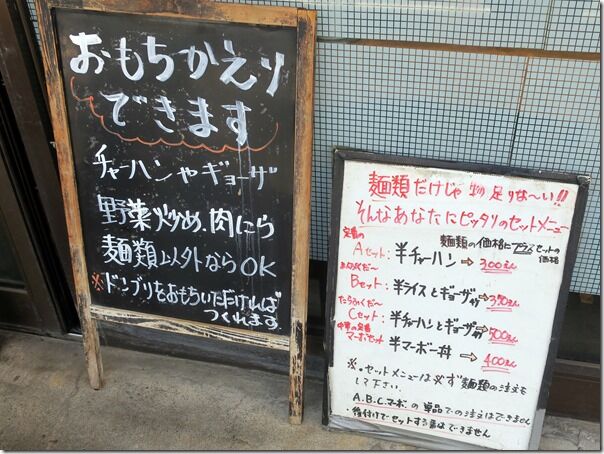 おもちかえり
できます
チャーハンやギョーザ
野菜炒め、肉にら
麺類以外ならOK
※ドンブリをおもちいただければ
つくれます
麺類だけじゃ物足りな〜い!!
そんなあなたにピッタリのセットメニュー
麺類の価格にプラスセットの価格
定番の
Aセット:半チャーハン→300えん
Bセット:半ライスとギョーザ→350えん
Cセット:半チャーハンとギョーザ→500えん
中華の定番
マーボーセット 半マーボー丼→400えん
※・セットメニューは必ず麺類の注文を
して下さい。
A.B.C.マーボーの単品での注文はできません
・後付けでセットする事はできません